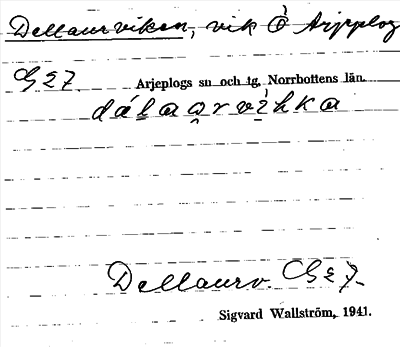 Dellaurviken, vik Ö Arjeplog
G27 Arjeplogs sn och tg. Norrbottens län.
dálaarvìhka
Dellaurv. G27.
Sigvard Wallström, 1941.